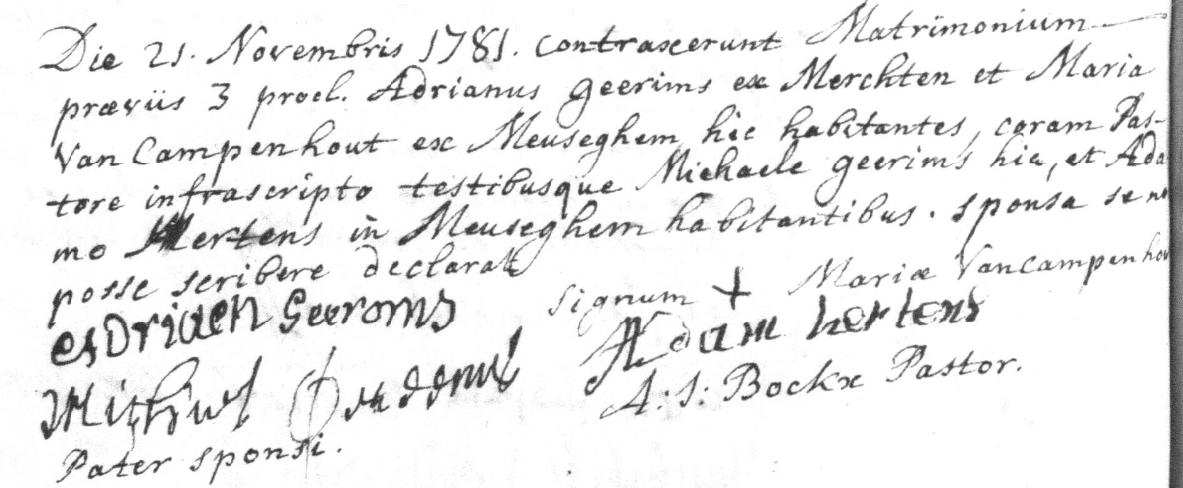 Die 21. Novembris 1781. contraxerunt Matrimonium
præviis 3 procl. Adrianus geerims ex Merchten et Maria
Van Campenhout ex Meuseghem hic habitantes, coram Pas-
tore infrascripto testibusque Michaele geerims hic, et Ada
mo Mertens in Meuseghem habitantibus. sponsa se n
posse scribere declarat
signum + Mariæ VanCampenhou
Adriaen Geeroms
Adam Mertens
A: J: Bockx Pastor.
Pater sponsi.